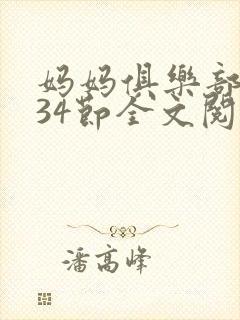 妈妈俱樂部
34節全文閱
潘高峰